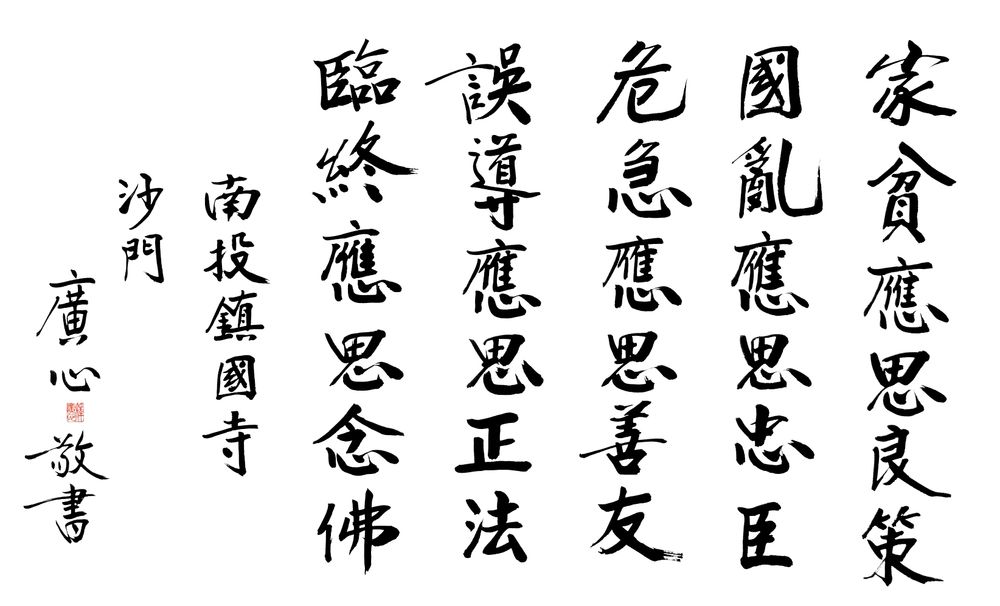 家貧應思良策
國亂應思忠臣
危急應思善友
誤導應思正法
臨終應思念佛
南投鎮國寺
沙門
廣心敬書